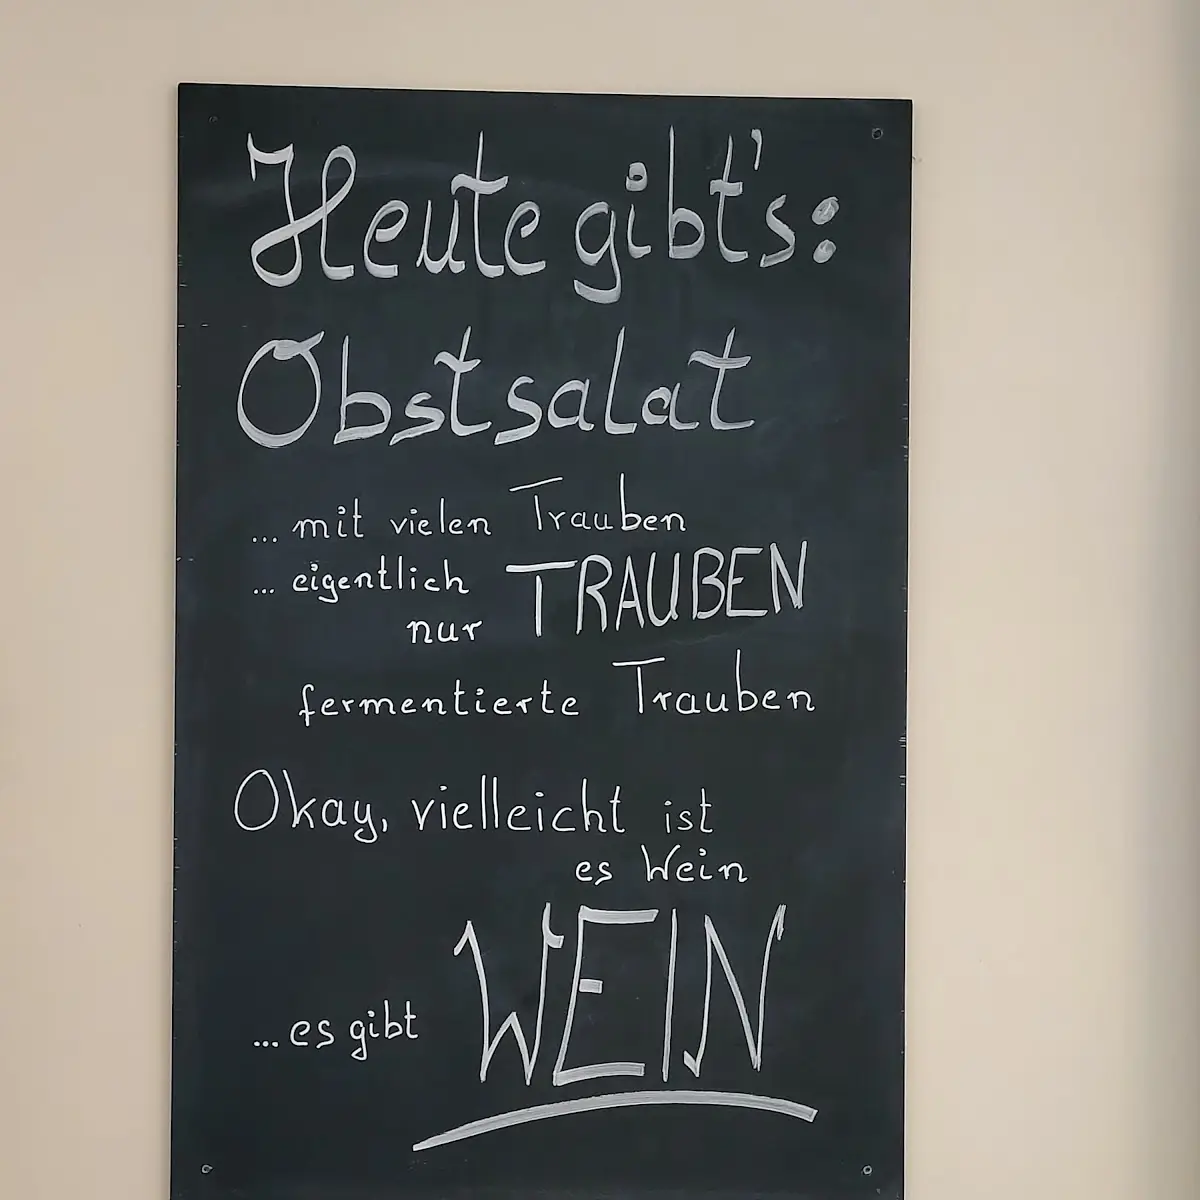 Heute gibt's:
Obstsalat
... mit vielen Trauben
... eigentlich
nur TRAUBEN
fermentierte Trauben
Okay, vielleicht ist
es Wein
... es gibt WEIN